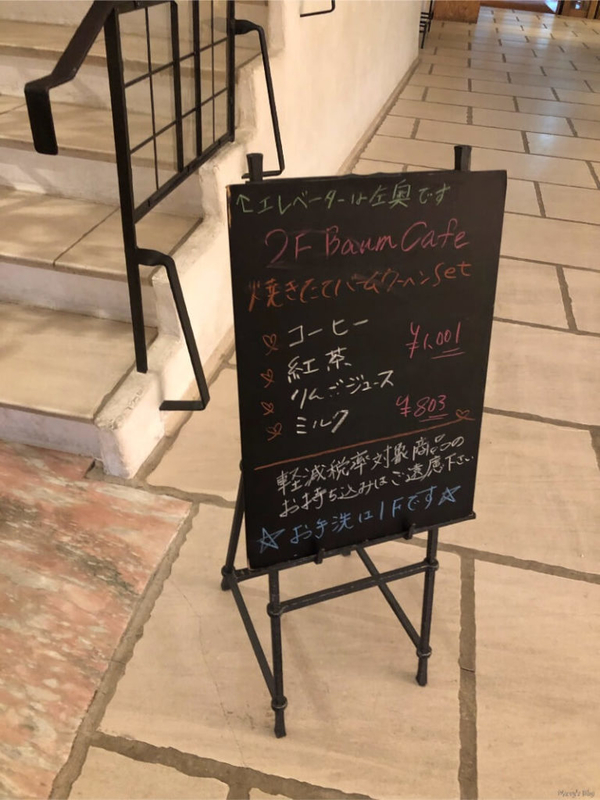 ↑エレベーターは左奥です
2F Baum Cafe
焼きたてバームクーヘンset
コーヒー
紅茶
¥1,001
りんごジュース
ミルク
¥803
軽減税率対象商品の
お持ち込みはご遠慮下さい
☆お手洗は1Fです☆